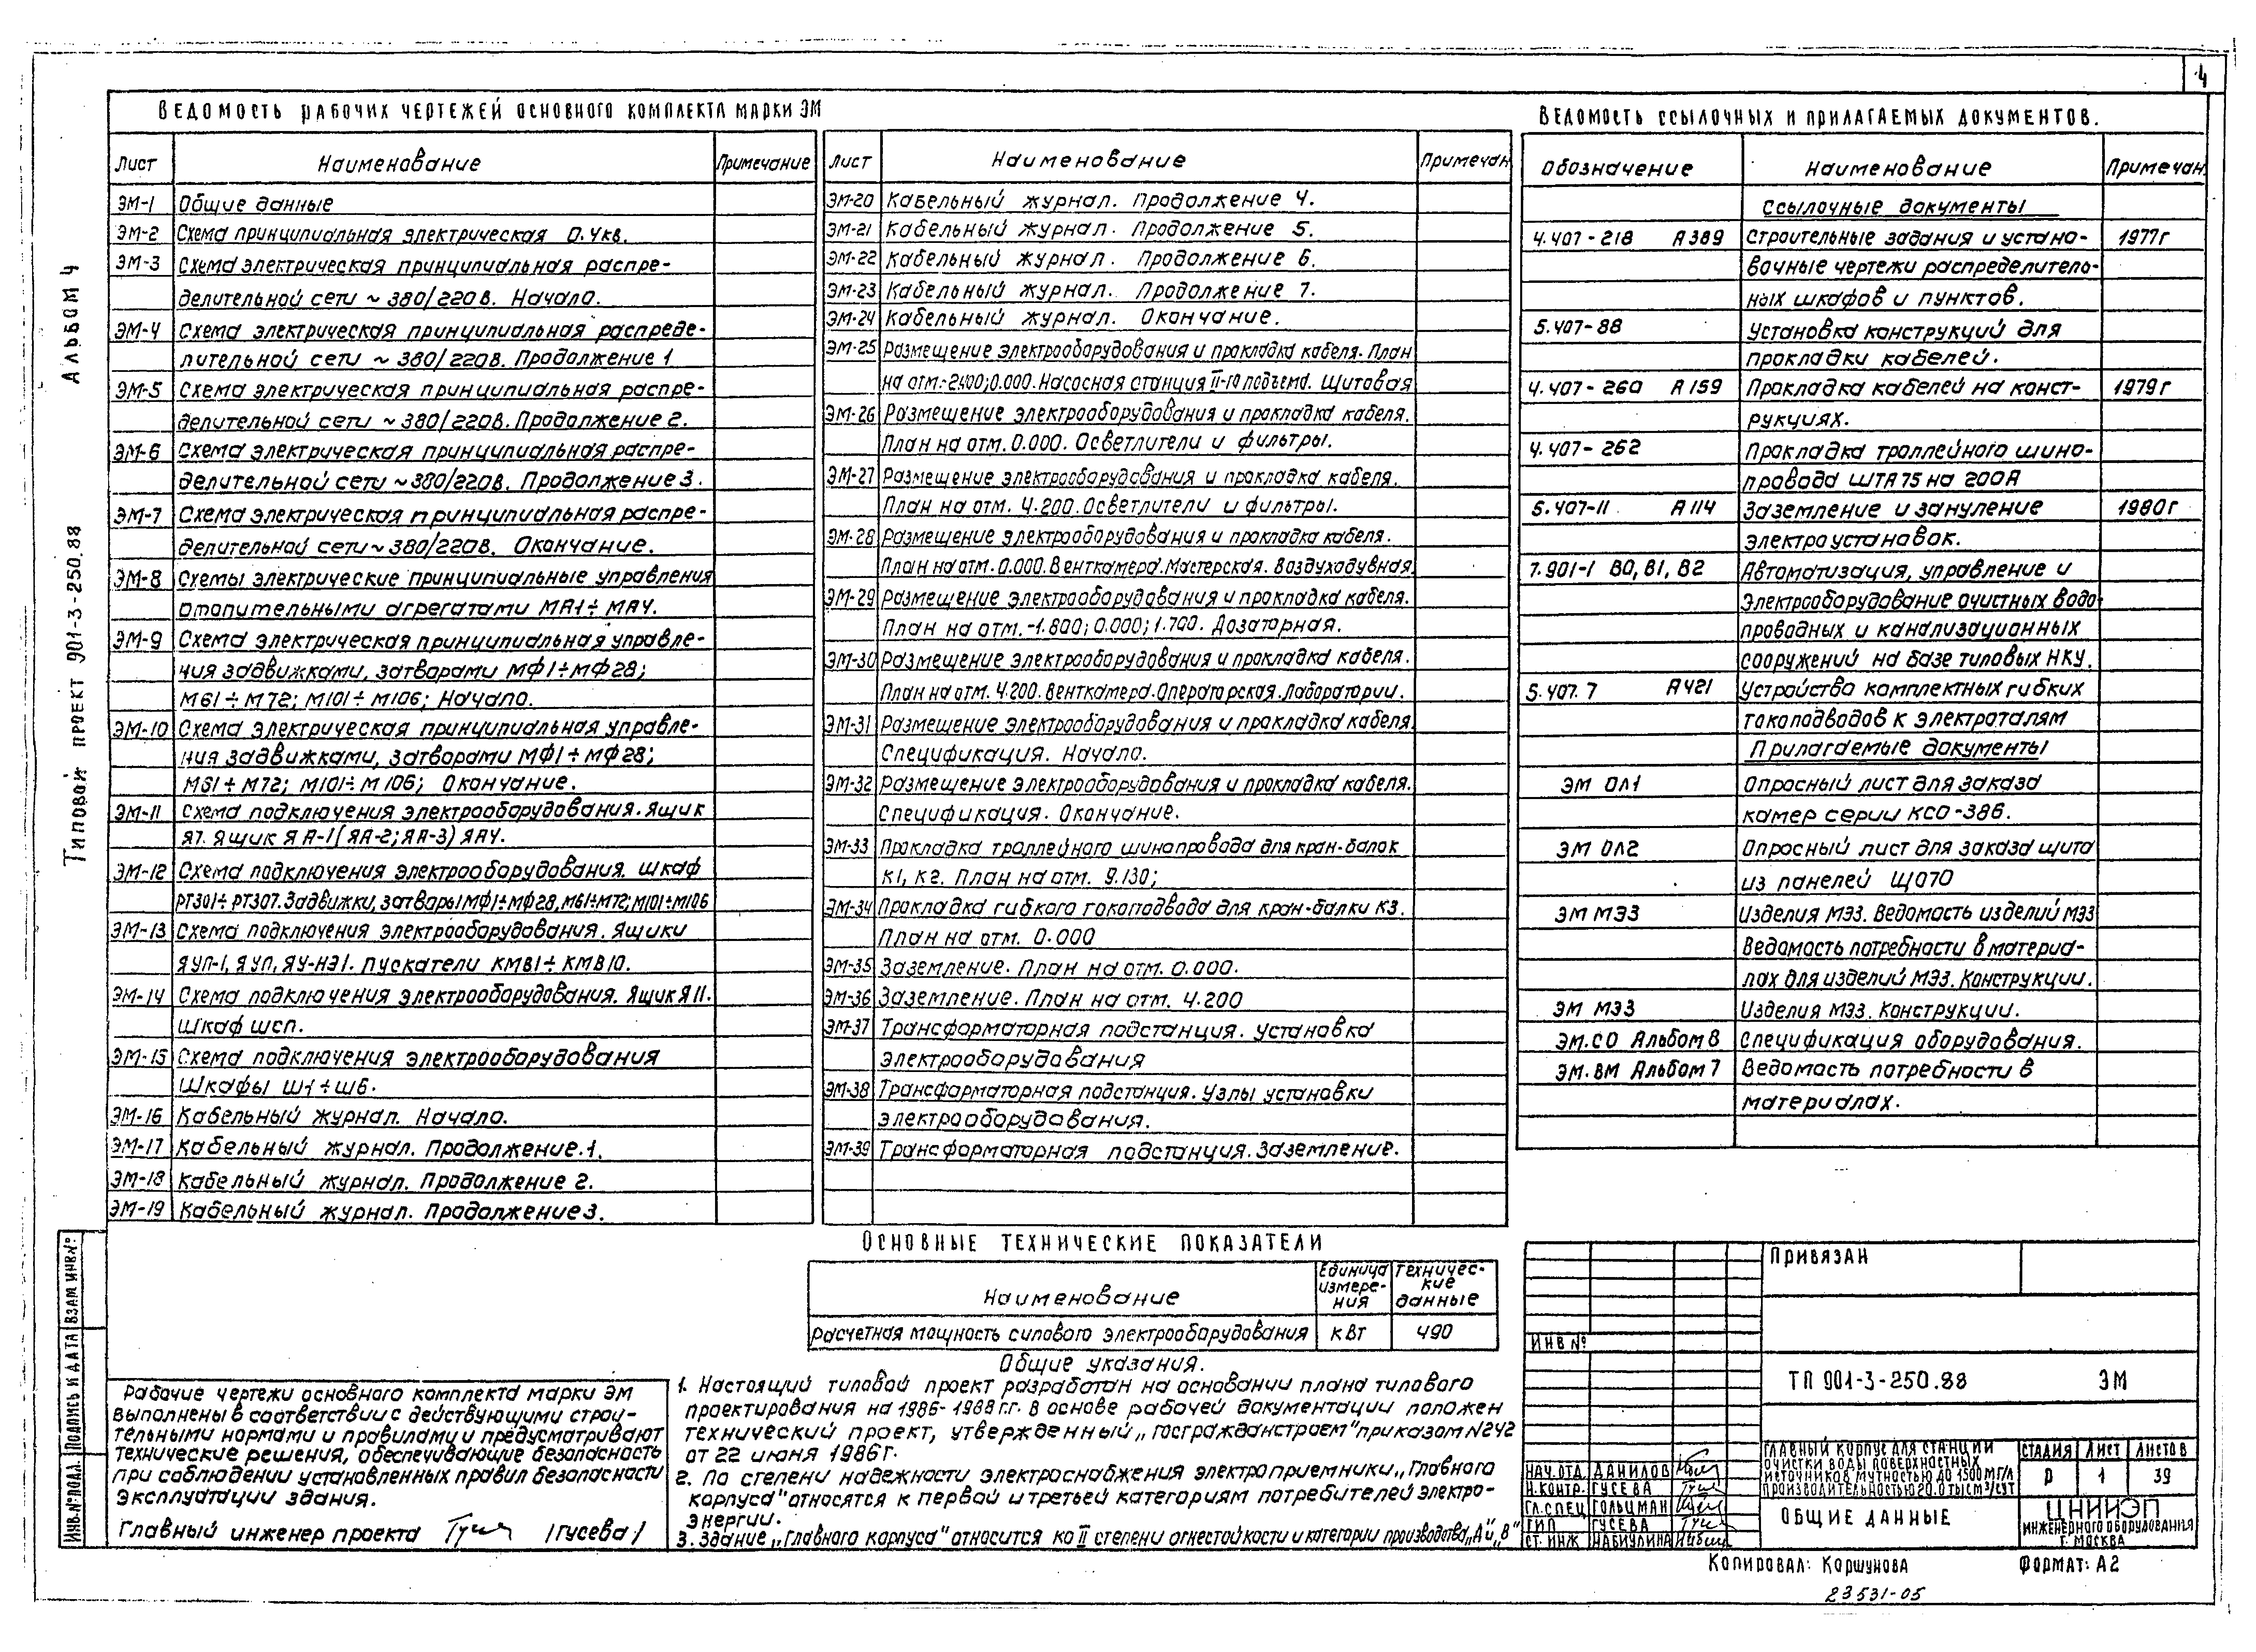 4
Альбом 4
Типовой проект 901-3-250.88
Ведомость рабочих чертежей основного комплекта марки ЭМ
Лист Наименование Примечание
ЭМ-1 Общие данные
ЭМ-2 Схема принципиальная электрическая 0.4кв.
ЭМ-3 Схема электрическая принципиальная распре-
делительной сети ~ 380/220в. Начало.
ЭМ-4 Схема электрическая принципиальная распреде-
лительной сети ~ 380/220в. Продолжение 1
ЭМ-5 Схема электрическая принципиальная распре-
делительной сети ~ 380/220в. Продолжение 2.
ЭМ-6 Схема электрическая принципиальная распре-
делительной сети ~ 380/220в. Продолжение 3.
ЭМ-7 Схема электрическая принципиальная распре-
делительной сети ~ 380/220в. Окончание.
ЭМ-8 Схемы электрические принципиальные управления
отопительными агрегатами МА1÷МА4.
ЭМ-9 Схема электрическая принципиальная управле-
ния задвижками, затворами МФ1÷МФ28;
М61÷М72; М101÷М106; Начало.
ЭМ-10 Схема электрическая принципиальная управле-
ния задвижками, затворами МФ1÷МФ28;
М61÷М72; М101÷М106; Окончание.
ЭМ-11 Схема подключения электрооборудования. Ящик
Я7. Ящик ЯА-1(ЯА-2;ЯА-3) ЯА4.
ЭМ-12 Схема подключения электрооборудования. шкаф
РТ301÷РТ307. Задвижки, затворы МФ1÷МФ28, М61÷М72; М101÷М106
ЭМ-13 Схема подключения электрооборудования. Ящики
ЯУП-1, ЯУП, ЯУ-НЭ1. Пускатели КМВ1÷КМВ10.
ЭМ-14 Схема подключения электрооборудования. Ящик Я11.
Шкаф шсп.
ЭМ-15 Схема подключения электрооборудования
Шкафы Ш1÷Ш6.
ЭМ-16 Кабельный журнал. Начало.
ЭМ-17 Кабельный журнал. Продолжение.1.
ЭМ-18 Кабельный журнал. Продолжение 2.
ЭМ-19 Кабельный журнал. Продолжение 3.
Лист Наименование Примечан
ЭМ-20 Кабельный журнал. Продолжение 4.
ЭМ-21 Кабельный журнал. Продолжение 5.
ЭМ-22 Кабельный журнал. Продолжение 6.
ЭМ-23 Кабельный журнал. Продолжение 7.
ЭМ-24 Кабельный журнал. Окончание.
ЭМ-25 Размещение электрооборудования и прокладка кабеля. План
на отм.-2.400; 0.000. Насосная станция II-го подъема. Щитовая
ЭМ-26 Размещение электрооборудования и прокладка кабеля.
План на отм. 0.000. Осветлители и фильтры.
ЭМ-27 Размещение электрооборудования и прокладка кабеля.
План на отм. 4.200. Осветлители и фильтры.
ЭМ-28 Размещение электрооборудования и прокладка кабеля.
План на отм. 0.000. Венткамера. Мастерская. Воздуходувная
ЭМ-29 Размещение электрооборудования и прокладка кабеля.
План на отм. -1.800; 0.000; 1.700. Дозаторная.
ЭМ-30 Размещение электрооборудования и прокладка кабеля.
План на отм. 4.200. Венткамера. Операторская. Лаборатории.
ЭМ-31 Размещение электрооборудования и прокладка кабеля.
Спецификация. Начало.
ЭМ-32 Размещение электрооборудования и прокладка кабеля.
Спецификация. Окончание.
ЭМ-33 Прокладка троллейного шинопровода для кран-балок
К1, К2. План на отм. 9.130;
ЭМ-34 Прокладка гибкого токоподвода для кран-балки К3.
План на отм. 0.000
ЭМ-35 Заземление. План на отм. 0.000.
ЭМ-36 Заземление. План на отм. 4.200
ЭМ-37 Трансформаторная подстанция. Установка
электрооборудования
ЭМ-38 Трансформаторная подстанция. Узлы установки
электрооборудования.
ЭМ-39 Трансформаторная подстанция. Заземление.
Ведомость ссылочных и прилагаемых документов.
Обозначение Наименование Примечан.
Ссылочные документы
4.407-218 А389 Строительные задания и устано- 1977г
вочные чертежи распределитель-
ных шкафов и пунктов.
5.407-88 Установка конструкций для
прокладки кабелей.
4.407-260 А159 Прокладка кабелей на конст- 1979г
рукциях.
4.407-262 Прокладка троллейного шино-
провода ШТА75 на 200А
5.407-11 А114 Заземление и зануление 1980г
электроустановок.
7.901-1 В0, В1, В2 Автоматизация, управление и
Электрооборудование очистных водо-
проводных и канализационных
сооружений на базе типовых НКУ.
5.407.7 А421 Устройство комплектных гибких
токоподводов к электроталям
Прилагаемые документы
ЭМ ОЛ1 Опросный лист для заказа
камер серии КСО-386.
ЭМ ОЛ2 Опросный лист для заказа щита
из панелей ЩО70
ЭМ МЭЗ Изделия МЭЗ. Ведомость изделий МЭЗ
Ведомость потребности в материа-
лах для изделий МЭЗ. Конструкции.
ЭМ МЭЗ Изделия МЭЗ. Конструкции.
ЭМ.СО Альбом 8 Спецификация оборудования.
ЭМ.ВМ Альбом 7 Ведомость потребности в
материалах.
Основные технические показатели
Наименование Единица измере-ния Техничес-кие данные
Расчетная мощность силового электрооборудования кВт 490
Рабочие чертежи основного комплекта марки ЭМ
выполнены в соответствии с действующими строи-
тельными нормами и правилами и предусматривают
технические решения, обеспечивающие безопасность
при соблюдении установленных правил безопасности
эксплуатации здания.
Главный инженер проекта /Гусева/
Общие указания.
1. Настоящий типовой проект разработан на основании плана типового
проектирования на 1986-1988г.г. В основе рабочей документации положен
технический проект, утвержденный „Госгражданстроем" приказом №242
от 22 июня 1986г.
2. По степени надежности электроснабжения электроприемники „Главного
корпуса" относятся к первой и третьей категориям потребителей электро-
энергии.
3. Здание „Главного корпуса" относится ко II степени огнестойкости и категории производства „А"и „В"
Инв.№ подл. Подпись и дата Взам инв№
Привязан
Инв №
ТП 901-3-250.88 ЭМ
Нач.отд. Данилов
Н.контр. Гусева
Гл.спец Гольцман
ГИП Гусева
Ст.инж Набиулина
Главный корпус для станции
очистки воды поверхностных
источников мутностью до 1500 мг/л
производительностью 20.0 тыс м³/сут
Стадия Лист Листов
Р 1 39
Общие данные
ЦНИИЭП
инженерного оборудования
г. Москва
Копировал: Коршунова Формат: А2
23531-05